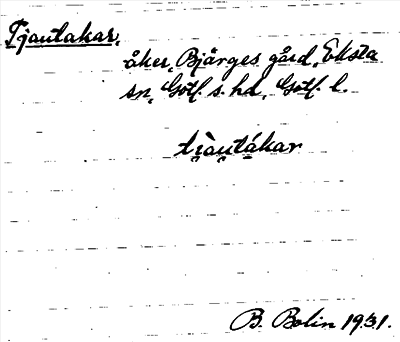 Tjautakar,
åker, Bjärges gård, Eksta
sn, Gotl. s. hd, Gotl. l.
ti̯au̯tákar
B. Bolin 1931.